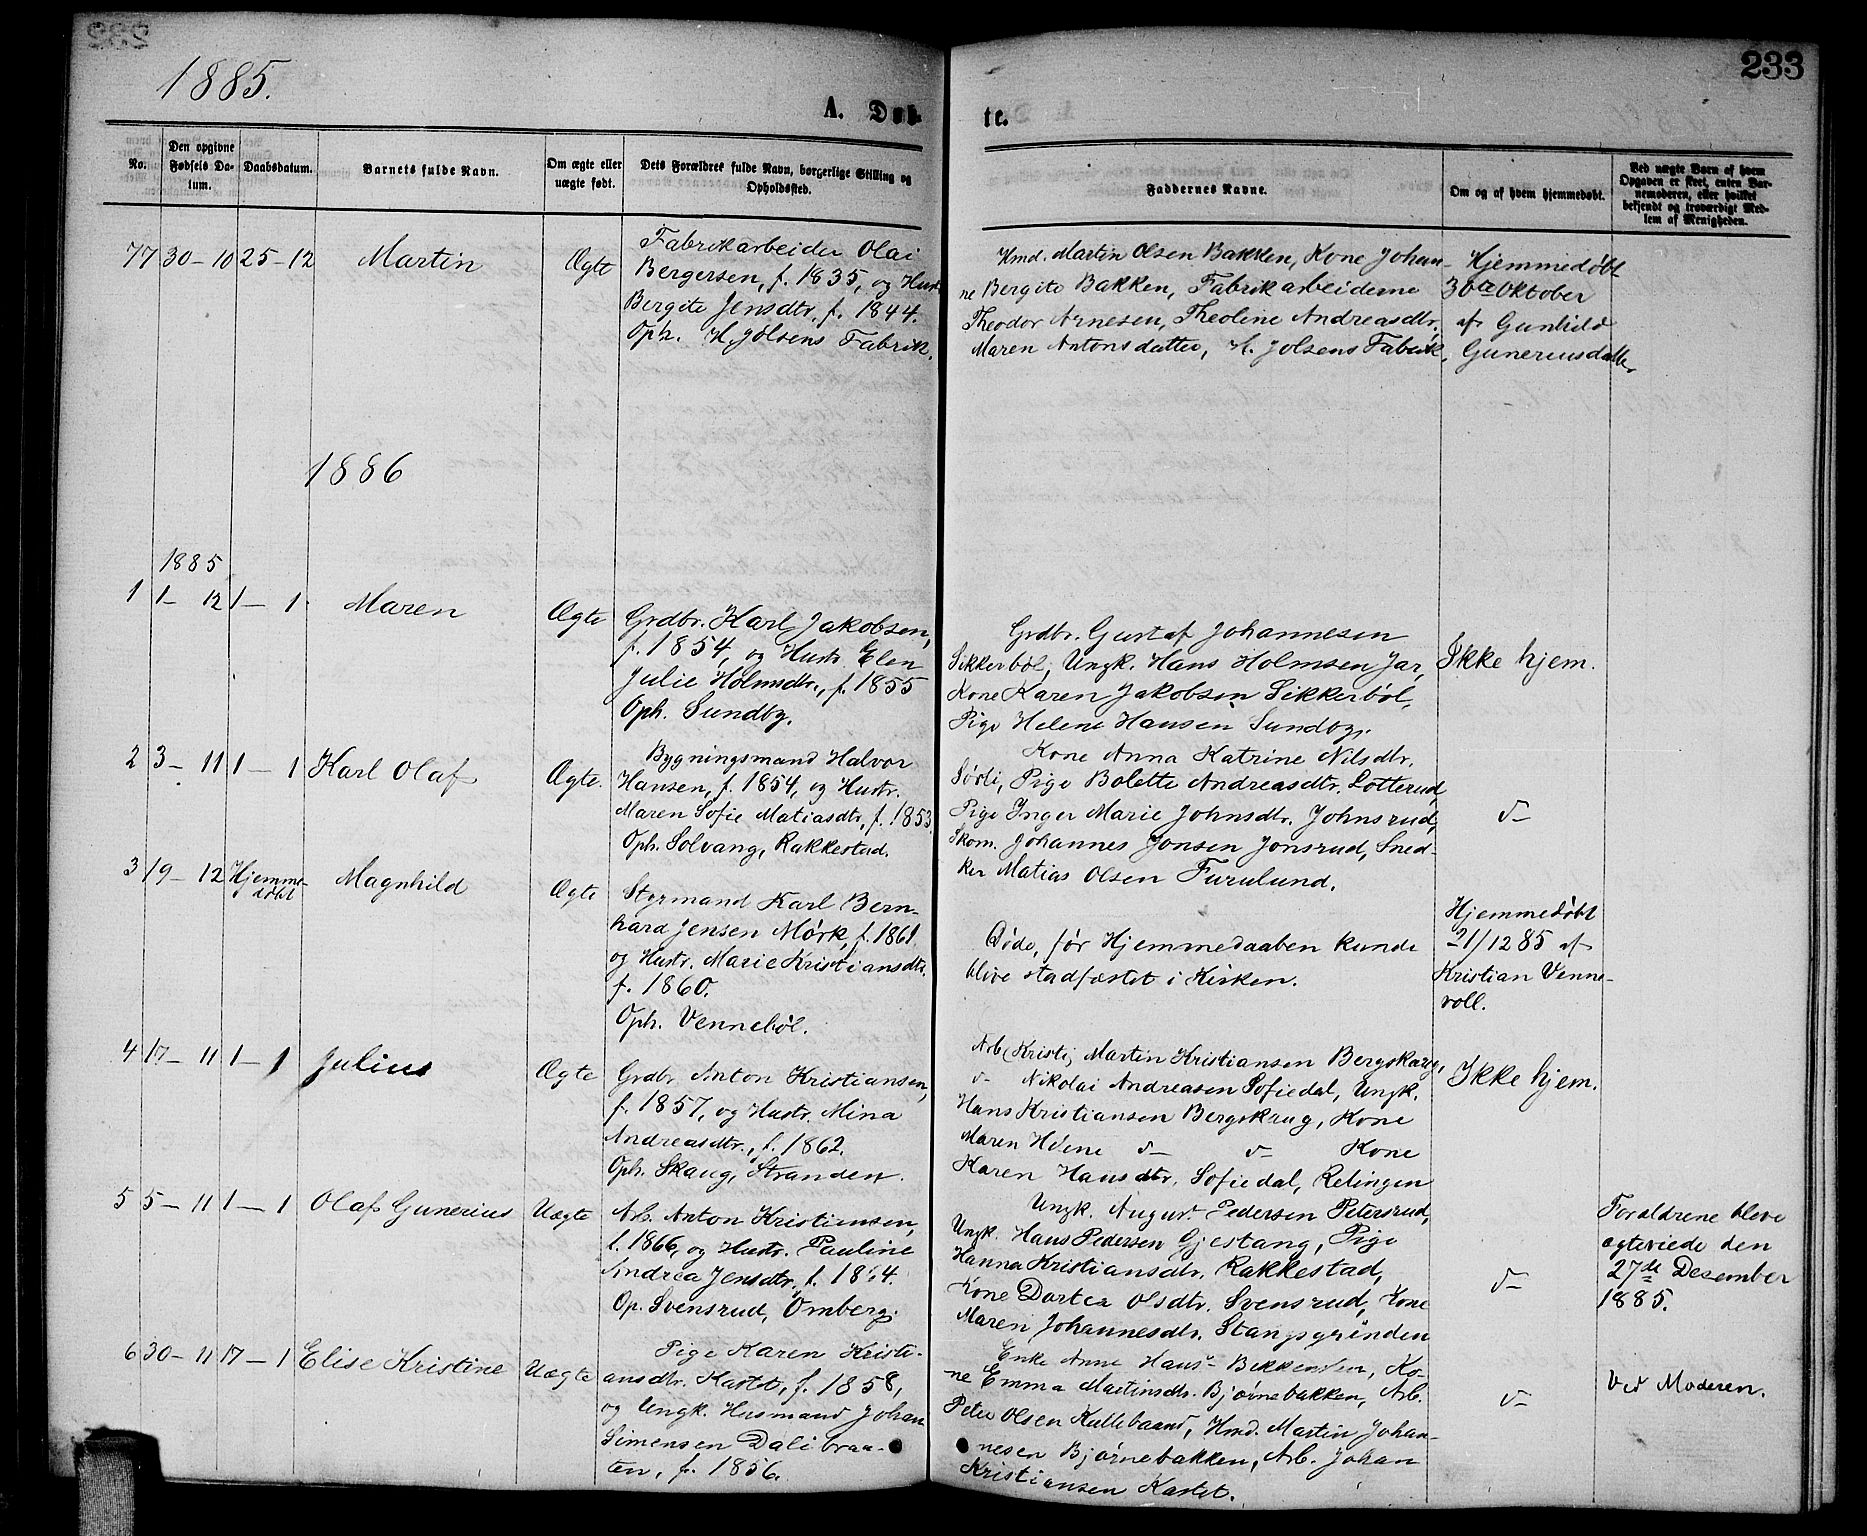 1885.
233
A. Døb-
te.
No.
Den opgivne
Fødsels Da-
tum.
Daabsdatum.
Barnets fulde Navn.
Om ægte eller
uægte født.
Dets Forældres fulde Navn, borgerlige Stilling og
Opholdssted.
Faddernes Navne.
Om og af hvem hjemmedøbt.
Ved uægte Børn af hvem
Opgaven er skeet, enten Bar-
nemoderen, eller hvilket
bekjendt og troværdigt Med-
lem af Menigheden.
77 30–10 25–12 Martin Ægte
Fabrikarbeider Olai
Bergersen, f. 1835, og Hustr.
Bergite Jensdtr. f. 1844.
Oph. H. Jölsens Fabrik.
Hmd. Martin Olsen Bakken, Kone Johan-
ne Bergite Bakken, Fabrikarbeiderne
Theodor Arnesen, Theoline Andreasdtr.
Maren Antonsdatter, H. Jolsens Fabrik.
Hjemmedøbt
30te Oktober
af Gunhild
Guneriusdatter
1886
1885
1 1–12 1–1 Maren Ægte
Grdbr. Karl Jakobsen,
f. 1854, og Hustr. Elen
Julie Holmsdtr., f. 1855
Oph. Sundby.
Grdbr. Gustaf Johannesen
Sikkerböl, Ungk. Hans Holmsen Jar,
Kone Karen Jakobsen Sikkerböl,
Pige Helene Hansen Sundby.
Ikke hjem.
2 3–11 1–1 Karl Olaf Ægte.
Bygningsmand Halvor
Hansen, f. 1854, og Hustr.
Maren Sofie Matiasdtr, f. 1853.
Oph. Solvang, Rakkestad.
Kone Anna Katrine Nilsdtr.
Sörli, Pige Bolette Andreasdtr. Lotterud,
Pige Inger Marie Johnsdtr. Johnsrud,
Skom. Johannes Jonsen Jonsrud, Sned-
ker Matias Olsen Furulund.
d–
3 19–12 Hjemme-
døbt
Magnhild Ægte
Styrmand Karl Bern-
hard Jensen Mörk, f. 1861
og Hustr. Marie Kristiansdtr.
f. 1860.
Oph. Venneböl.
Döde, før Hjemmedaaben kunde
blive stadfæstet i Kirken.
Hjemmedöbt
21/12 85 af
Kristian Venne-
voll.
4 17–11 1–1 Julius Ægte
Grdbr Anton Kristiansen,
f. 1857, og Hustr. Mina
Andreasdtr., f. 1862.
Oph. Skaug, Stranden.
Arb. Martin Kristiansen Bergskaug,
d– Nikolai Andreasen Sofiedal, Ungk.
Hans Kristiansen Bergskrug, Kone
Maren Helene d– d– Kone
Karen Hansdtr. Sofiedal, Relingen
Ikke hjem.
5 5–11 1–1 Olaf Gunerius Uægte
Arb. Anton Kristiansen,
f. 1866, og Hustr. Pauline
Andrea Jensdtr, f. 1864.
Op. Svensrud, Ömberg.
Ungk. August Pedersen Petersrud,
Ungk. Hans Pedersen Gjestang, Pige
Hanna Kristiansdtr. Rakkestad,
Kone Dortea Olsdtr. Svensrud, Kone
Maren Johannesdtr. Stangsgrinden
d–
Foraldrene bleve
ægteviede den
27de Desember
1885.
6 30–11 17–1 Elise Kristine Uægte
Pige Karen Kristi-
ansdtr. Kastet, f. 1858,
og Ungk. Husmand Johan
Simensen Dalibraa-
ten, f. 1856.
Enke Anne Hans- Bekkenden, Ko-
ne Emma Martinsdtr. Bjørnebakken, Arb.
Peter Olsen Kullebaand, Hmd. Martin Johan-
nesen Bjørnebakken, Arb. Johan
Kristiansen Kastet.
d–
Ved Moderen.